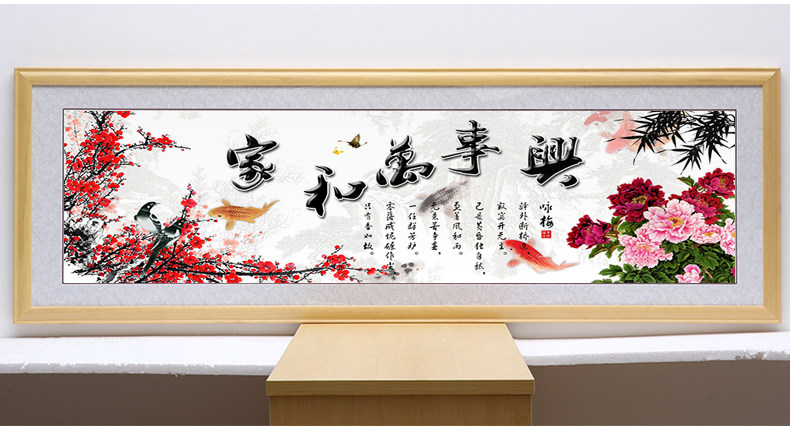 家和萬事興
咏梅
驿外断桥边，
寂寞开无主。
已是黄昏独自愁，
更著风和雨。
无意苦争春，
一任群芳妒。
零落成泥碾作尘，
只有香如故。